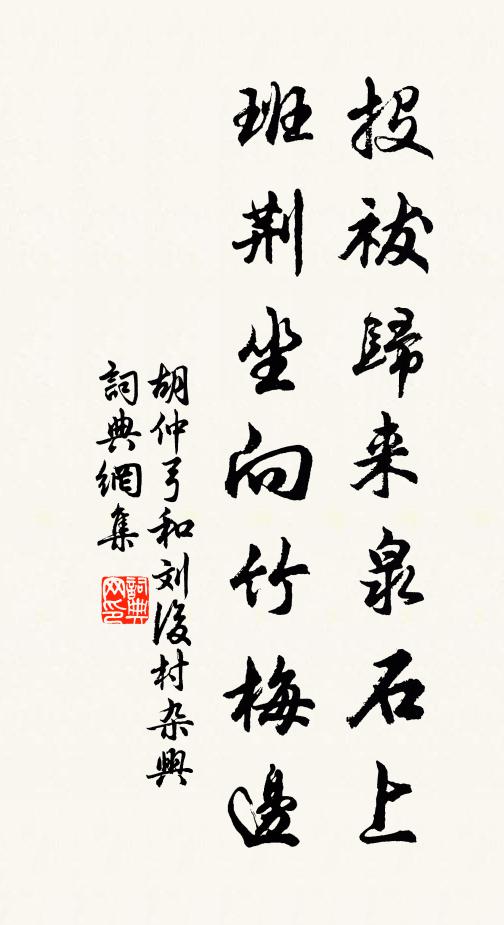 投袚歸来泉石上
班荆坐向竹梅邊
胡仲弓和刘後村杂興
詞典網集
詞典网印